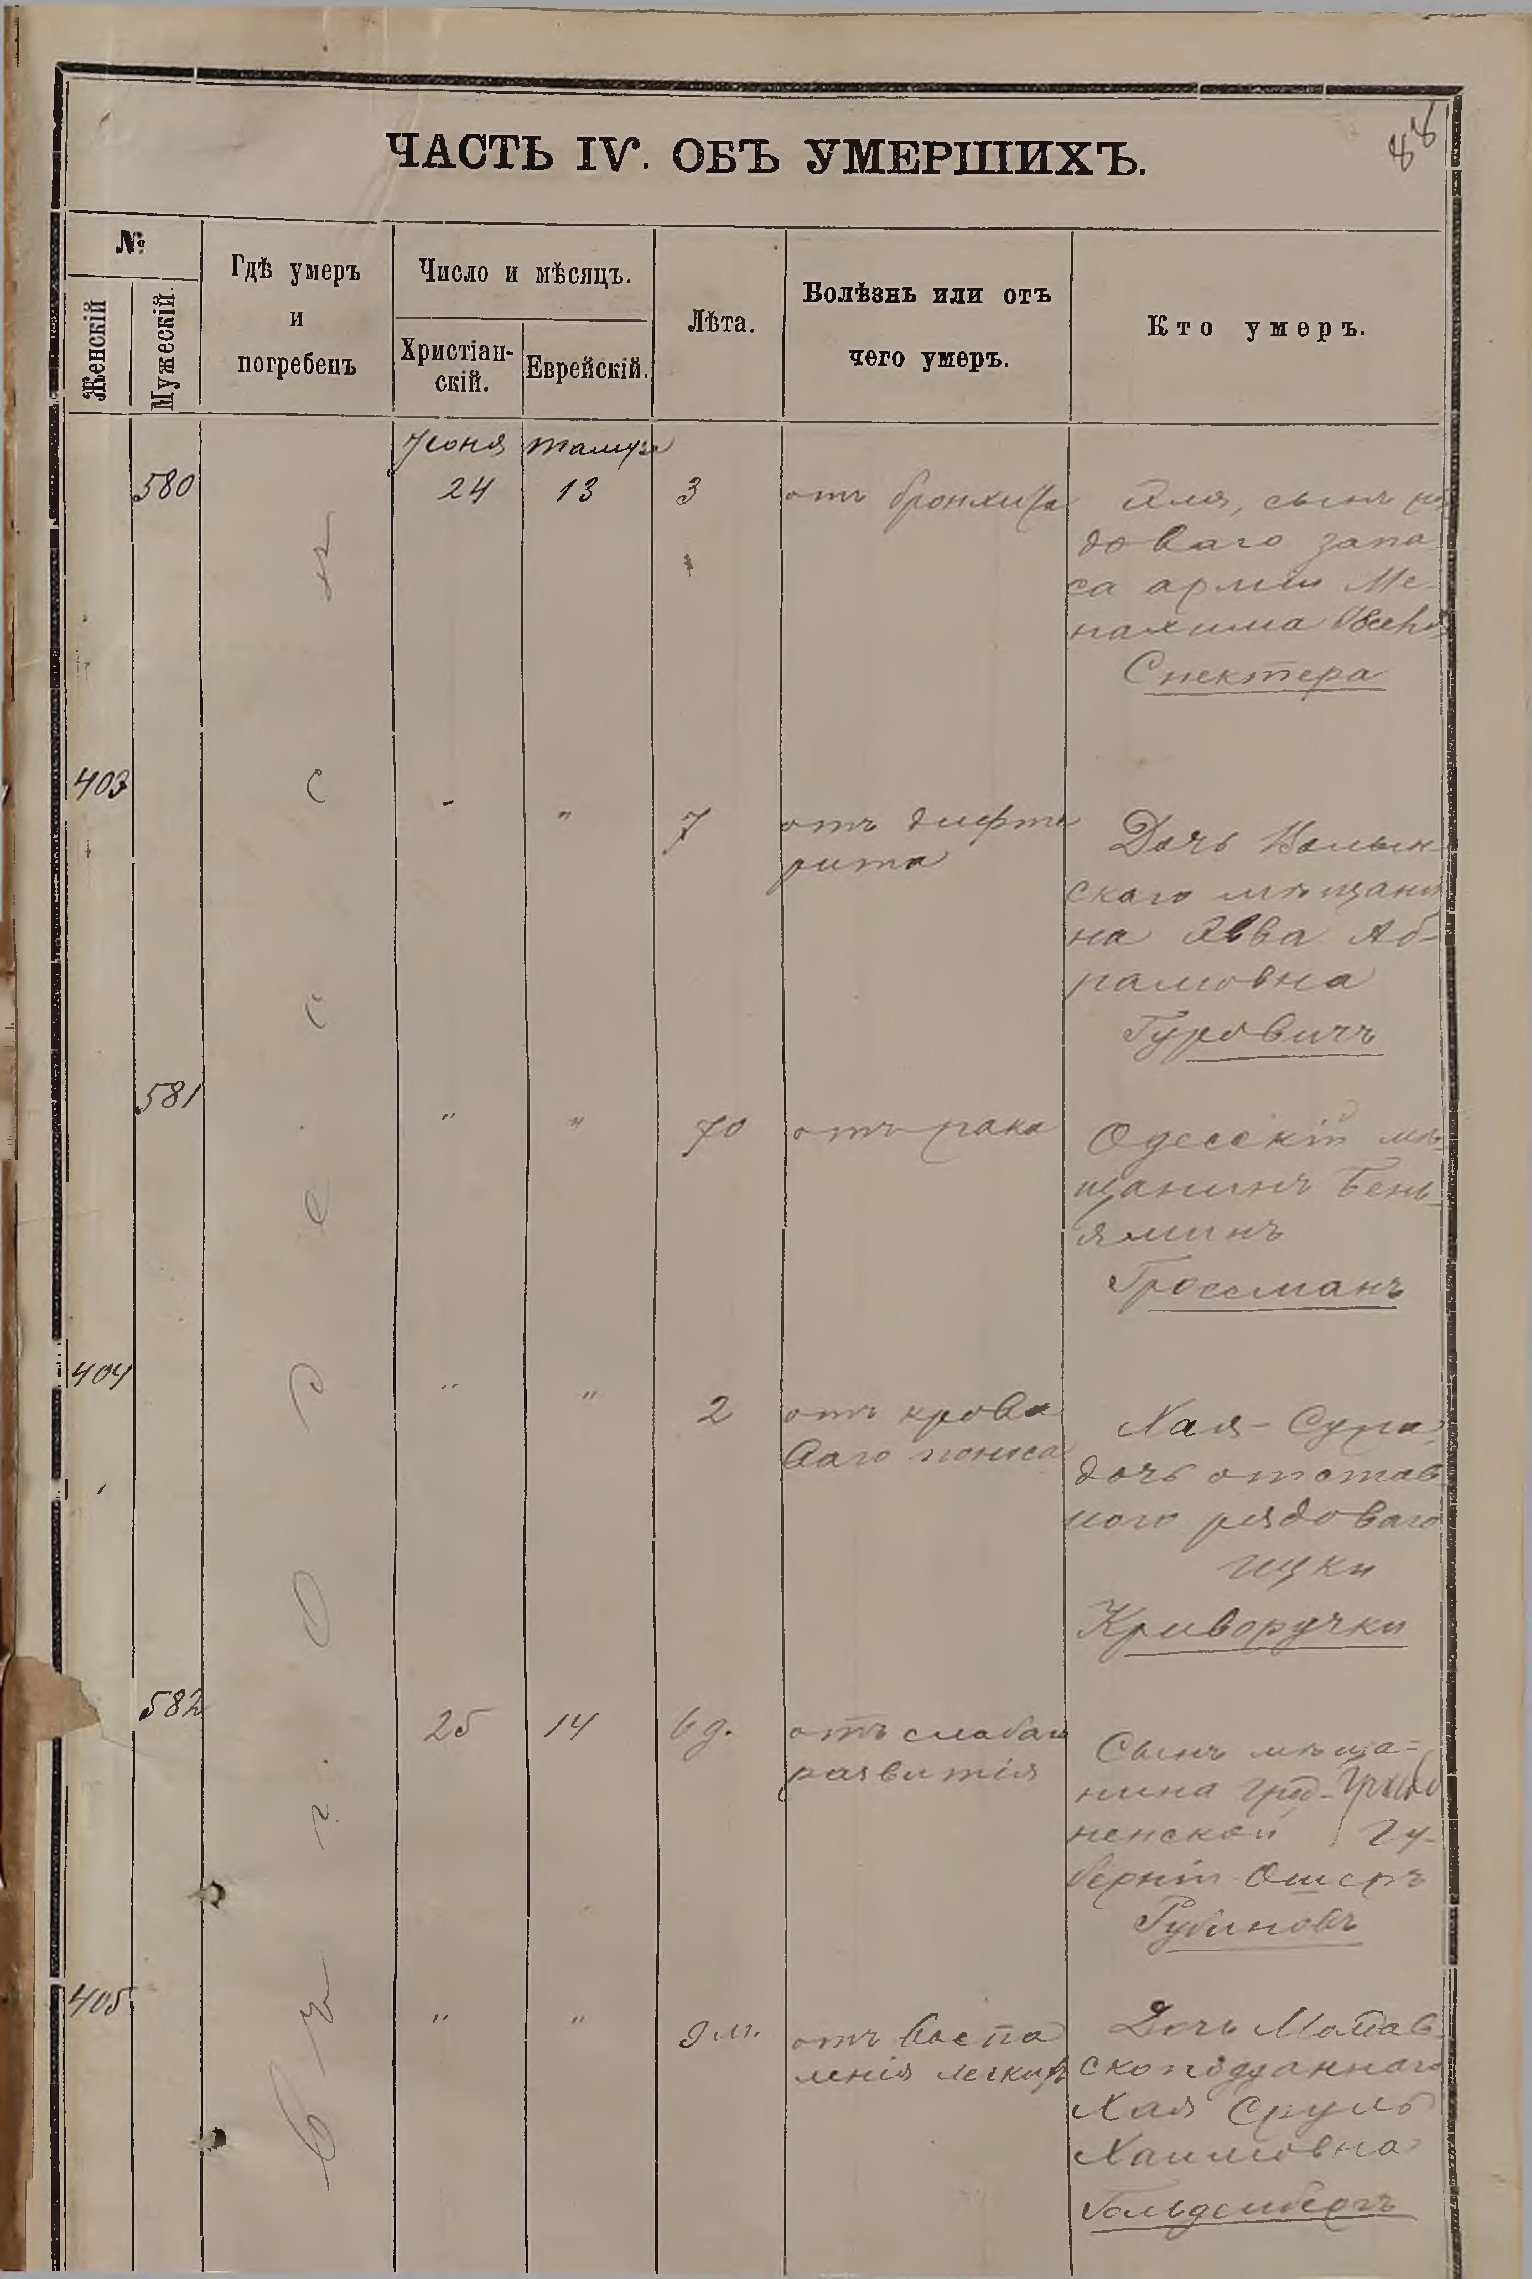 88
ЧАСТЬ IV. ОБЪ УМЕРШИХЪ.
№
Женскій
Мужескій.
Гдѣ умеръ
и
погребенъ
Число и мѣсяцъ.
Христіан-
скій.
Еврейскій.
Лѣта.
Болѣзнь или отъ
чего умеръ.
Кто умеръ.
Въ г. Одессѣ
Іюня Тамуза
580 24 13 3 отъ бронхита
сынъ ря
доваго запа
са арміи Ме-
нахима
Спектера
403 - " 7 отъ дифте
рита
Дочь Волын-
скаго мѣщани
на Хева Аб-
рамовна
Гуровичъ
581 " " 70 отъ рака
Одесскій мѣ
щанинъ Бень-
яминъ
Гроссманъ
404 " " 2 отъ крова
ваго поноса
Хая-Сура,
дочь отстав
ного рядоваго
Ицки
Криворучки
582 25 14 6 д. отъ слабаго
развитія
Сынъ мѣща-
нина Грод-
ненской Гу-
берніи Ошеръ
Рубиновъ
405 " " 9 м. отъ воспа
ленія легкихъ
Дочь Молдав
скоподданнаго
Хая Сруль
Хаимовна
Гольденбергъ